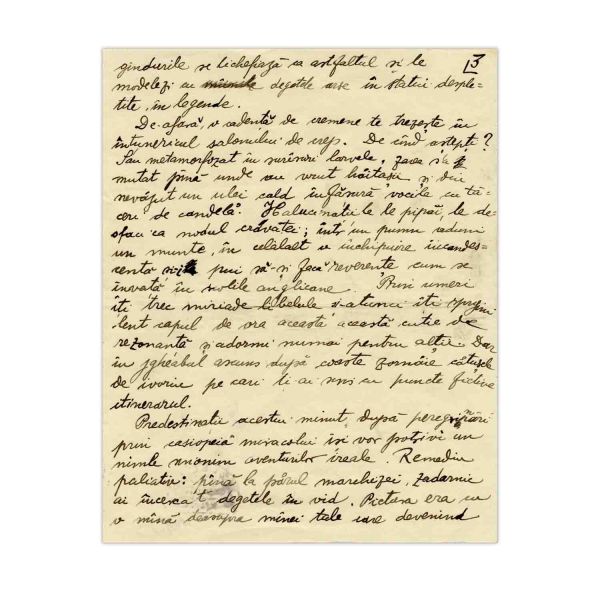 3
gîndurile se lichefiază ca asfaltul și le
modelezi cu mîinile degetele arse în statui desple-
tite, în legende.
De-afară, o cadență de cremene te trezește în
întunericul salonului de crep. De cînd aștepți?
S'au metamorfozat în surîsuri larvele,
mutat pînă unde au vrut hăitașii și din
nevăzut un ulei cald înfășură vocile cu tă-
ceri de candelă. Halucinațiile le pipăi, le de-
sfaci ca nodul cravatei; într'un pumn aduni
un munte, în celălalt o închipuire incandes-
centă pui să-și facă reverențe cum se
învață în școlile anglicane. Prin umeri
îți trec miriade libelule și-atunci îți sprijini
lent capul de ora aceasta această cutie de
rezonanță și adormi numai pentru alții. Dar
în jgheabul ascuns după coaste zornăie cătușele
de ivoriu pe cari ți-ai scris cu puncte fictive
itinerarul.
Predestinații acestui minut, după peregrinări
prin casiopeia miracolului își vor potrivi un
nimb unonim aventurilor ireale. Remediu
paliativ: pînă la părul marchizei, zadarnic
ai încerca degetele în vid. Pictura era cu
o mînă deasupra mînei tale care devenind